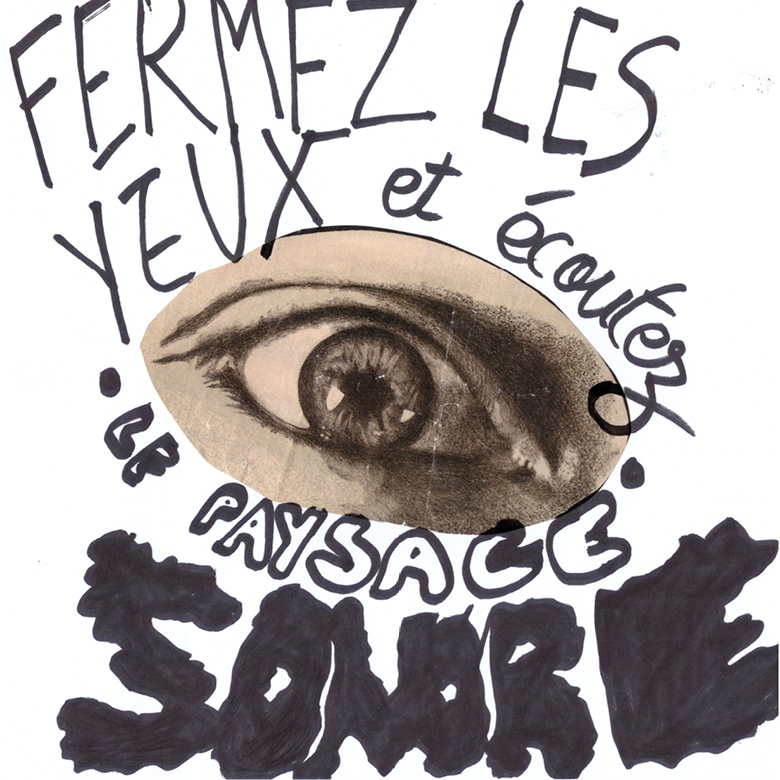 FERMEZ LES
YEUX et écoutez
. LE PAYSAGE .
SONORE